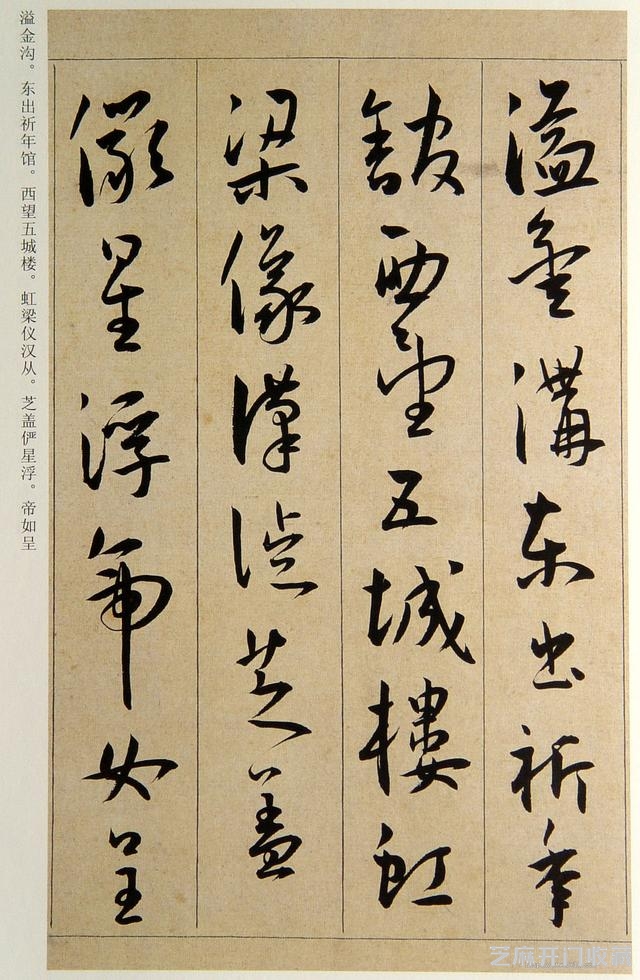 溢金溝東出祈年
館西望五城樓虹
梁儀漢從芝蓋
儼星浮帝女呈
溢金沟。东出祈年馆。西望五城楼。虹梁仪汉从。芝盖俨星浮。帝如呈
芝麻开门收藏